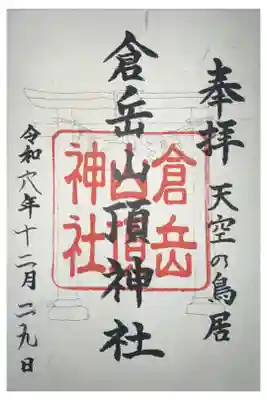 奉拝 天空の鳥居
倉岳山頂神社
令和六年十二月二九日
倉岳
山頂
神社